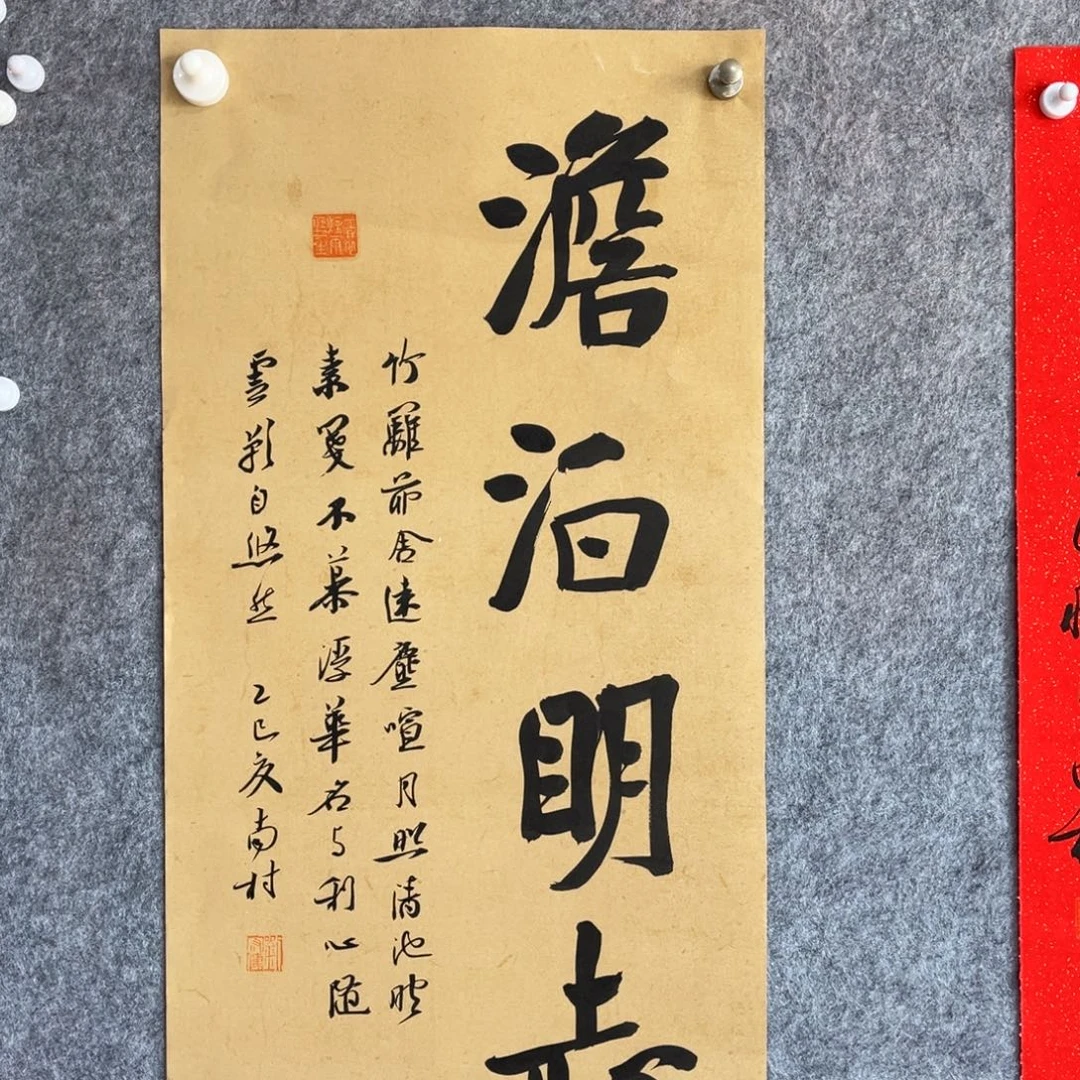 澹泊明志
竹籬茆舍遠塵喧月照清池映
素箋不慕浮華名与利心隨
雲影自悠然 乙巳夏南村